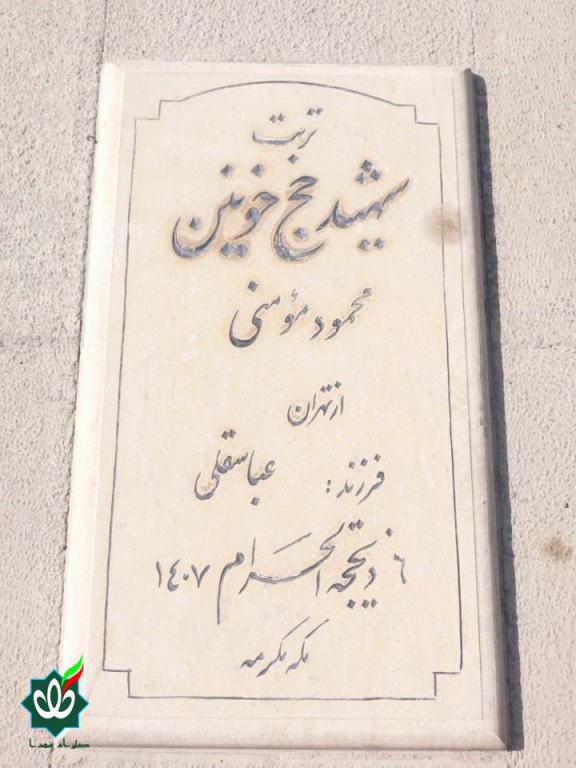 تربت
شهید حج خونین
محمود مؤمنی
از تهران
فرزند: عباسقلی
۶ ذیحجه الحرام ۱۴۰۷
مکه مکرمه
گلزار شهدا